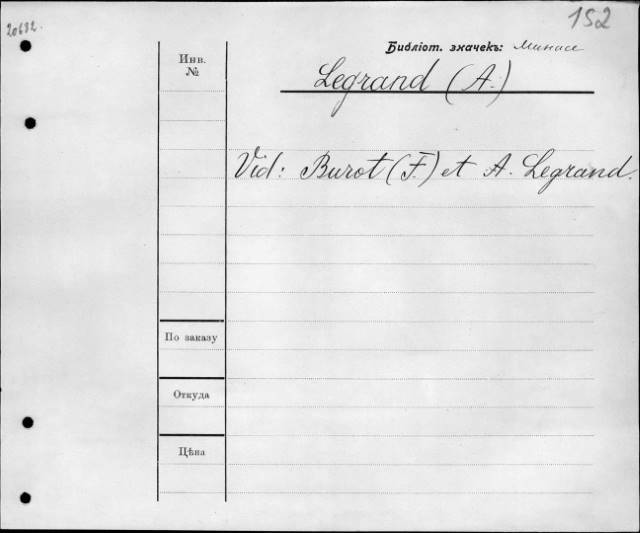 20632.
152
Инв.
№
Библіот. значекъ:
Legrand (A.)
Vid: Burot (F.) et A. Legrand.
По заказу
Откуда
Цѣна